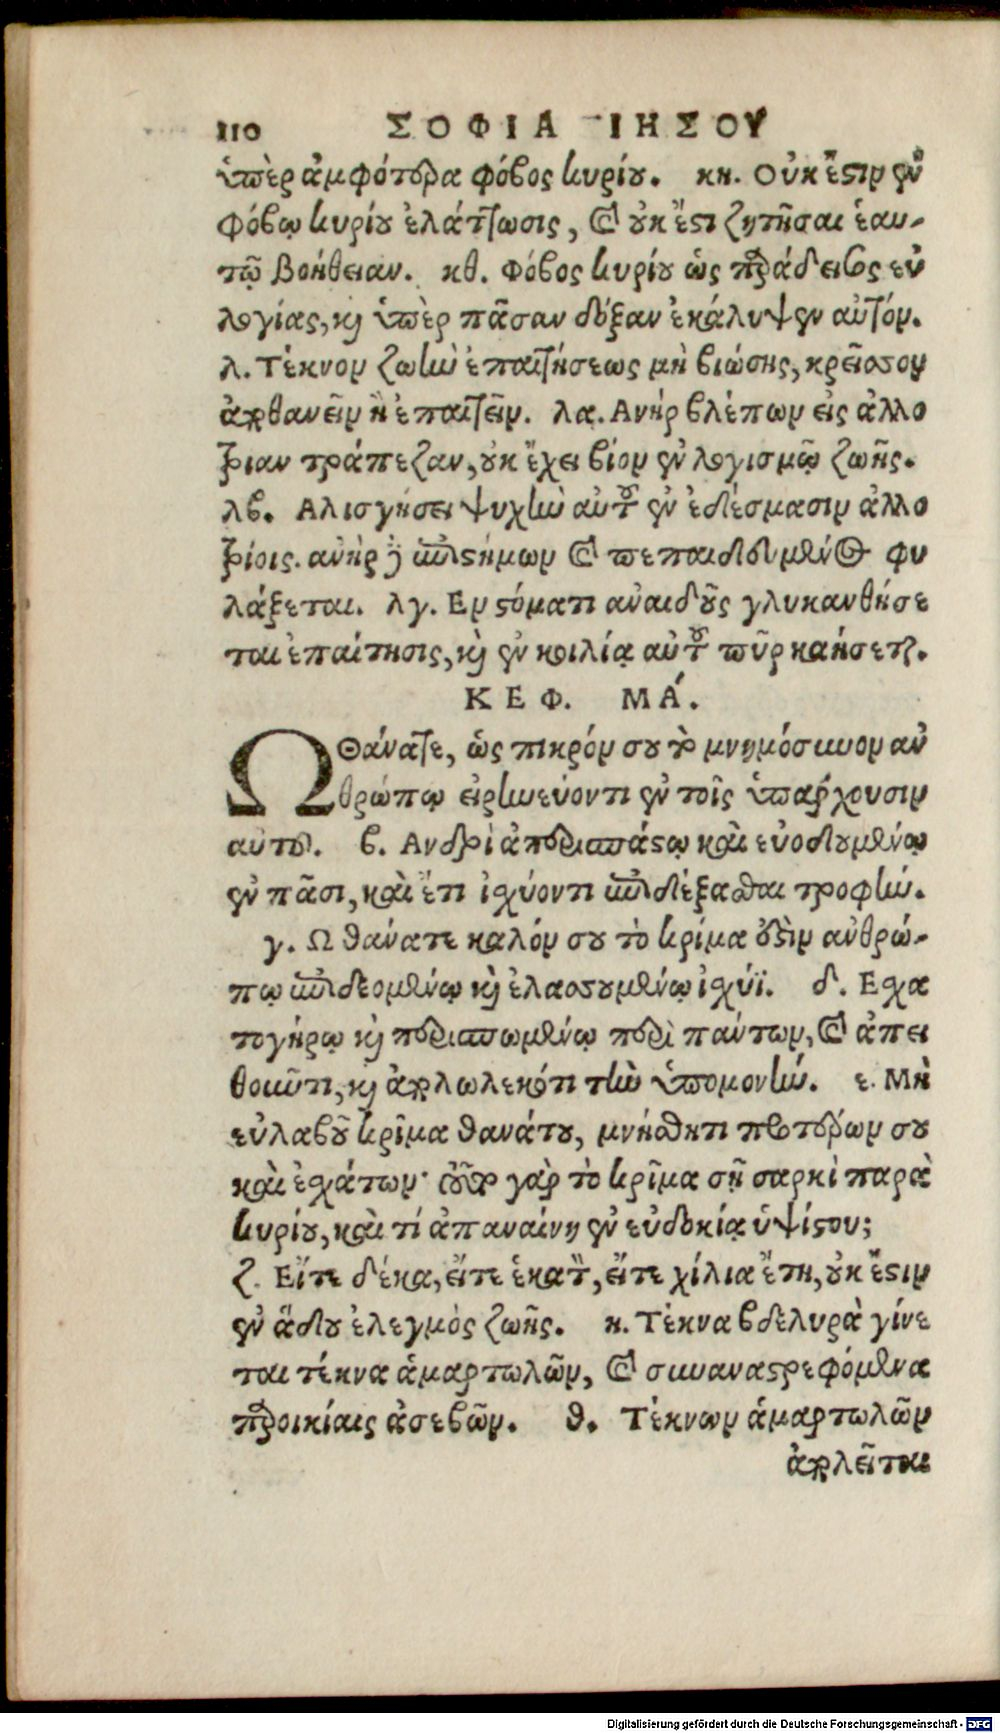 110 ΣΟΦΙΑ ΙΗΣΟΥ
ὑπὲρ ἀμφότερα φόβος κυρίου. κη. Οὐκ ἔστιν ἐν
φόβῳ κυρίου ἐλάττωσις, καὶ οὐκ ἔστι ζητῆσαι ἑαυ-
τῷ βοήθειαν. κθ. Φόβος κυρίου ὡς παράδεισος εὐ
λογίας, καὶ ὑπὲρ πᾶσαν δόξαν ἐκάλυψεν αὐτόν.
λ. Τέκνον ζωὴν ἐπαιτήσεως μὴ βιώσῃς, κρεῖσσον
ἀποθανεῖν ἢ ἐπαιτεῖν. λα. Ανὴρ βλέπων εἰς ἀλλο
τρίαν τράπεζαν, οὐκ ἔχει βίον ἐν λογισμῷ ζωῆς.
λβ. Αλισγήσει ψυχὴν αὐτοῦ ἐν ἐδέσμασιν ἀλλο
τρίοις. ἀνὴρ δὲ ἐπιστήμων καὶ πεπαιδευμένος φυ
λάξεται. λγ. Εν στόματι ἀναιδοῦς γλυκανθήσε
ται ἐπαίτησις, καὶ ἐν κοιλίᾳ αὐτοῦ πῦρ καήσεται.
ΚΕΦ. ΜΑ.
Ω θάνατε, ὡς πικρόν σου τὸ μνημόσυνον ἀν
θρώπῳ εἰρηνεύοντι ἐν τοῖς ὑπάρχουσιν
αὐτοῦ. β. Ανδρὶ ἀπερισπάστῳ καὶ εὐοδουμένῳ
ἐν πᾶσι, καὶ ἔτι ἰσχύοντι ἐπιδέξασθαι τροφήν.
γ. Ω θάνατε καλόν σου τὸ κρίμα ἐστὶν ἀνθρώ-
πῳ ἐπιδεομένῳ καὶ ἐλασσουμένῳ ἰσχύϊ. δ. Εσχα
τογήρῳ καὶ περισπωμένῳ περὶ πάντων, καὶ ἀπει
θοῦντι, καὶ ἀπολωλεκότι τὴν ὑπομονήν. ε. Μὴ
εὐλαβοῦ κρῖμα θανάτου, μνήσθητι προτέρων σου
καὶ ἐσχάτων· τοῦτο γὰρ τὸ κρῖμα σῇ σαρκὶ παρὰ
κυρίου, καὶ τί ἀπαναίνῃ ἐν εὐδοκίᾳ ὑψίστου;
ζ. Εἴτε δέκα, εἴτε ἑκατὸν, εἴτε χίλια ἔτη, οὐκ ἔστιν
ἐν ᾅδου ἐλεγμὸς ζωῆς. η. Τέκνα βδελυρὰ γίνε
ται τέκνα ἁμαρτωλῶν, καὶ συναναστρεφόμενα
παροικίαις ἀσεβῶν. θ. Τέκνων ἁμαρτωλῶν
ἀπολεῖται
Digitalisierung gefördert durch die Deutsche Forschungsgemeinschaft - DFG